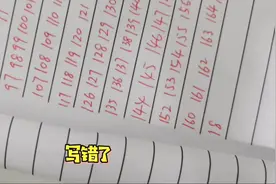 97 98 99 100 101
107 108 109 110
117 118 119 120
126 127 128 129 130
135 136 137 138 139
144 145 146 147
152 153 154 155
160 161 162 163 164
18
写错了